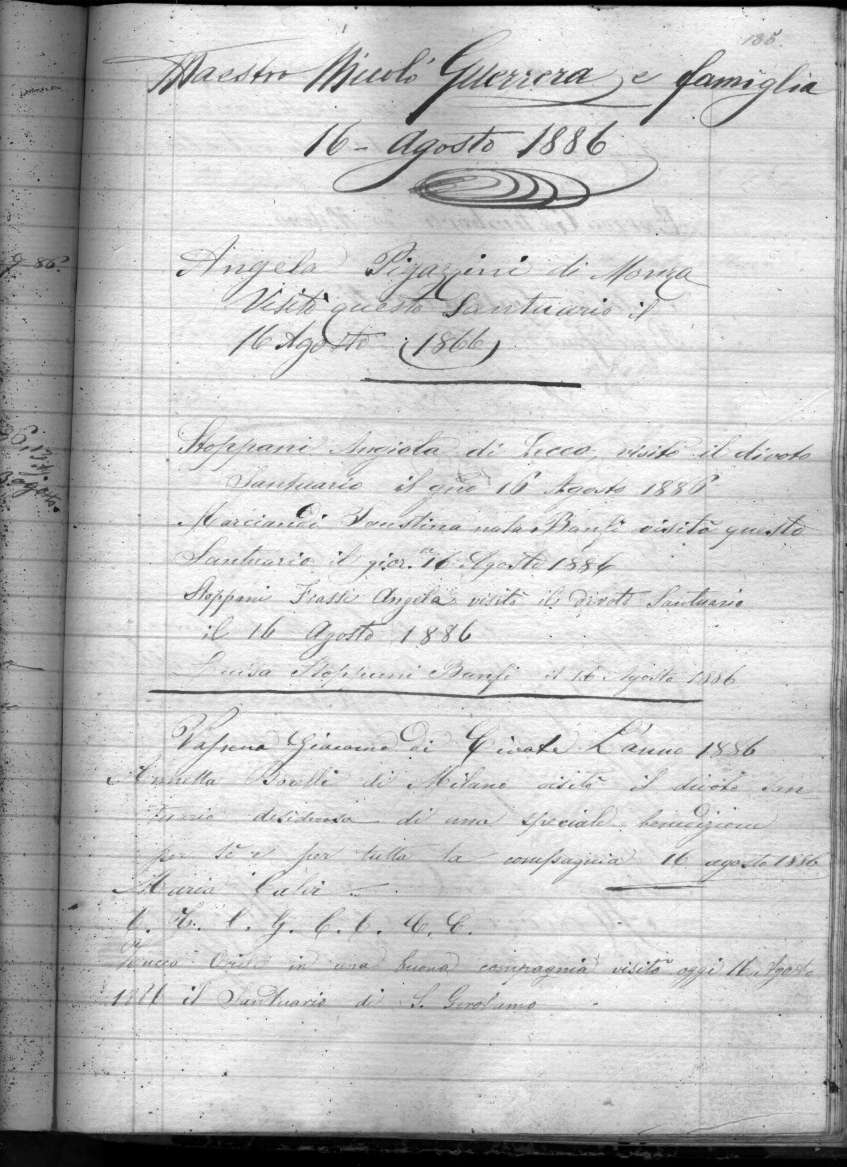 185.
Maestro Nicolò Guerrera e famiglia
16 - Agosto 1886
Angela Pigazzini di Monza
Visitò questo Santuario il
16 Agosto 1866
Stoppani Angiola di Lecco, visitò il divoto
Santuario il 16 Agosto 1886
Faustina nata Banfi visitò questo
Santuario il gior. 16 Agosto 1886
Stoppani Angela visitò il divoto Santuario
il 16 Agosto 1886
Luisa Stoppani Banfi il 16 Agosto 1886
Giacomo di Civate L'anno 1886
Annetta Borelli di Milano visitò il divoto San
tuario desiderosa di una speciale benedizione
per sè e per tutta la compagnia 16 agosto 1886
Maria Calvi
in una buona compagnia visitò oggi 16 Agosto
1886 il Santuario di S. Girolamo
86.